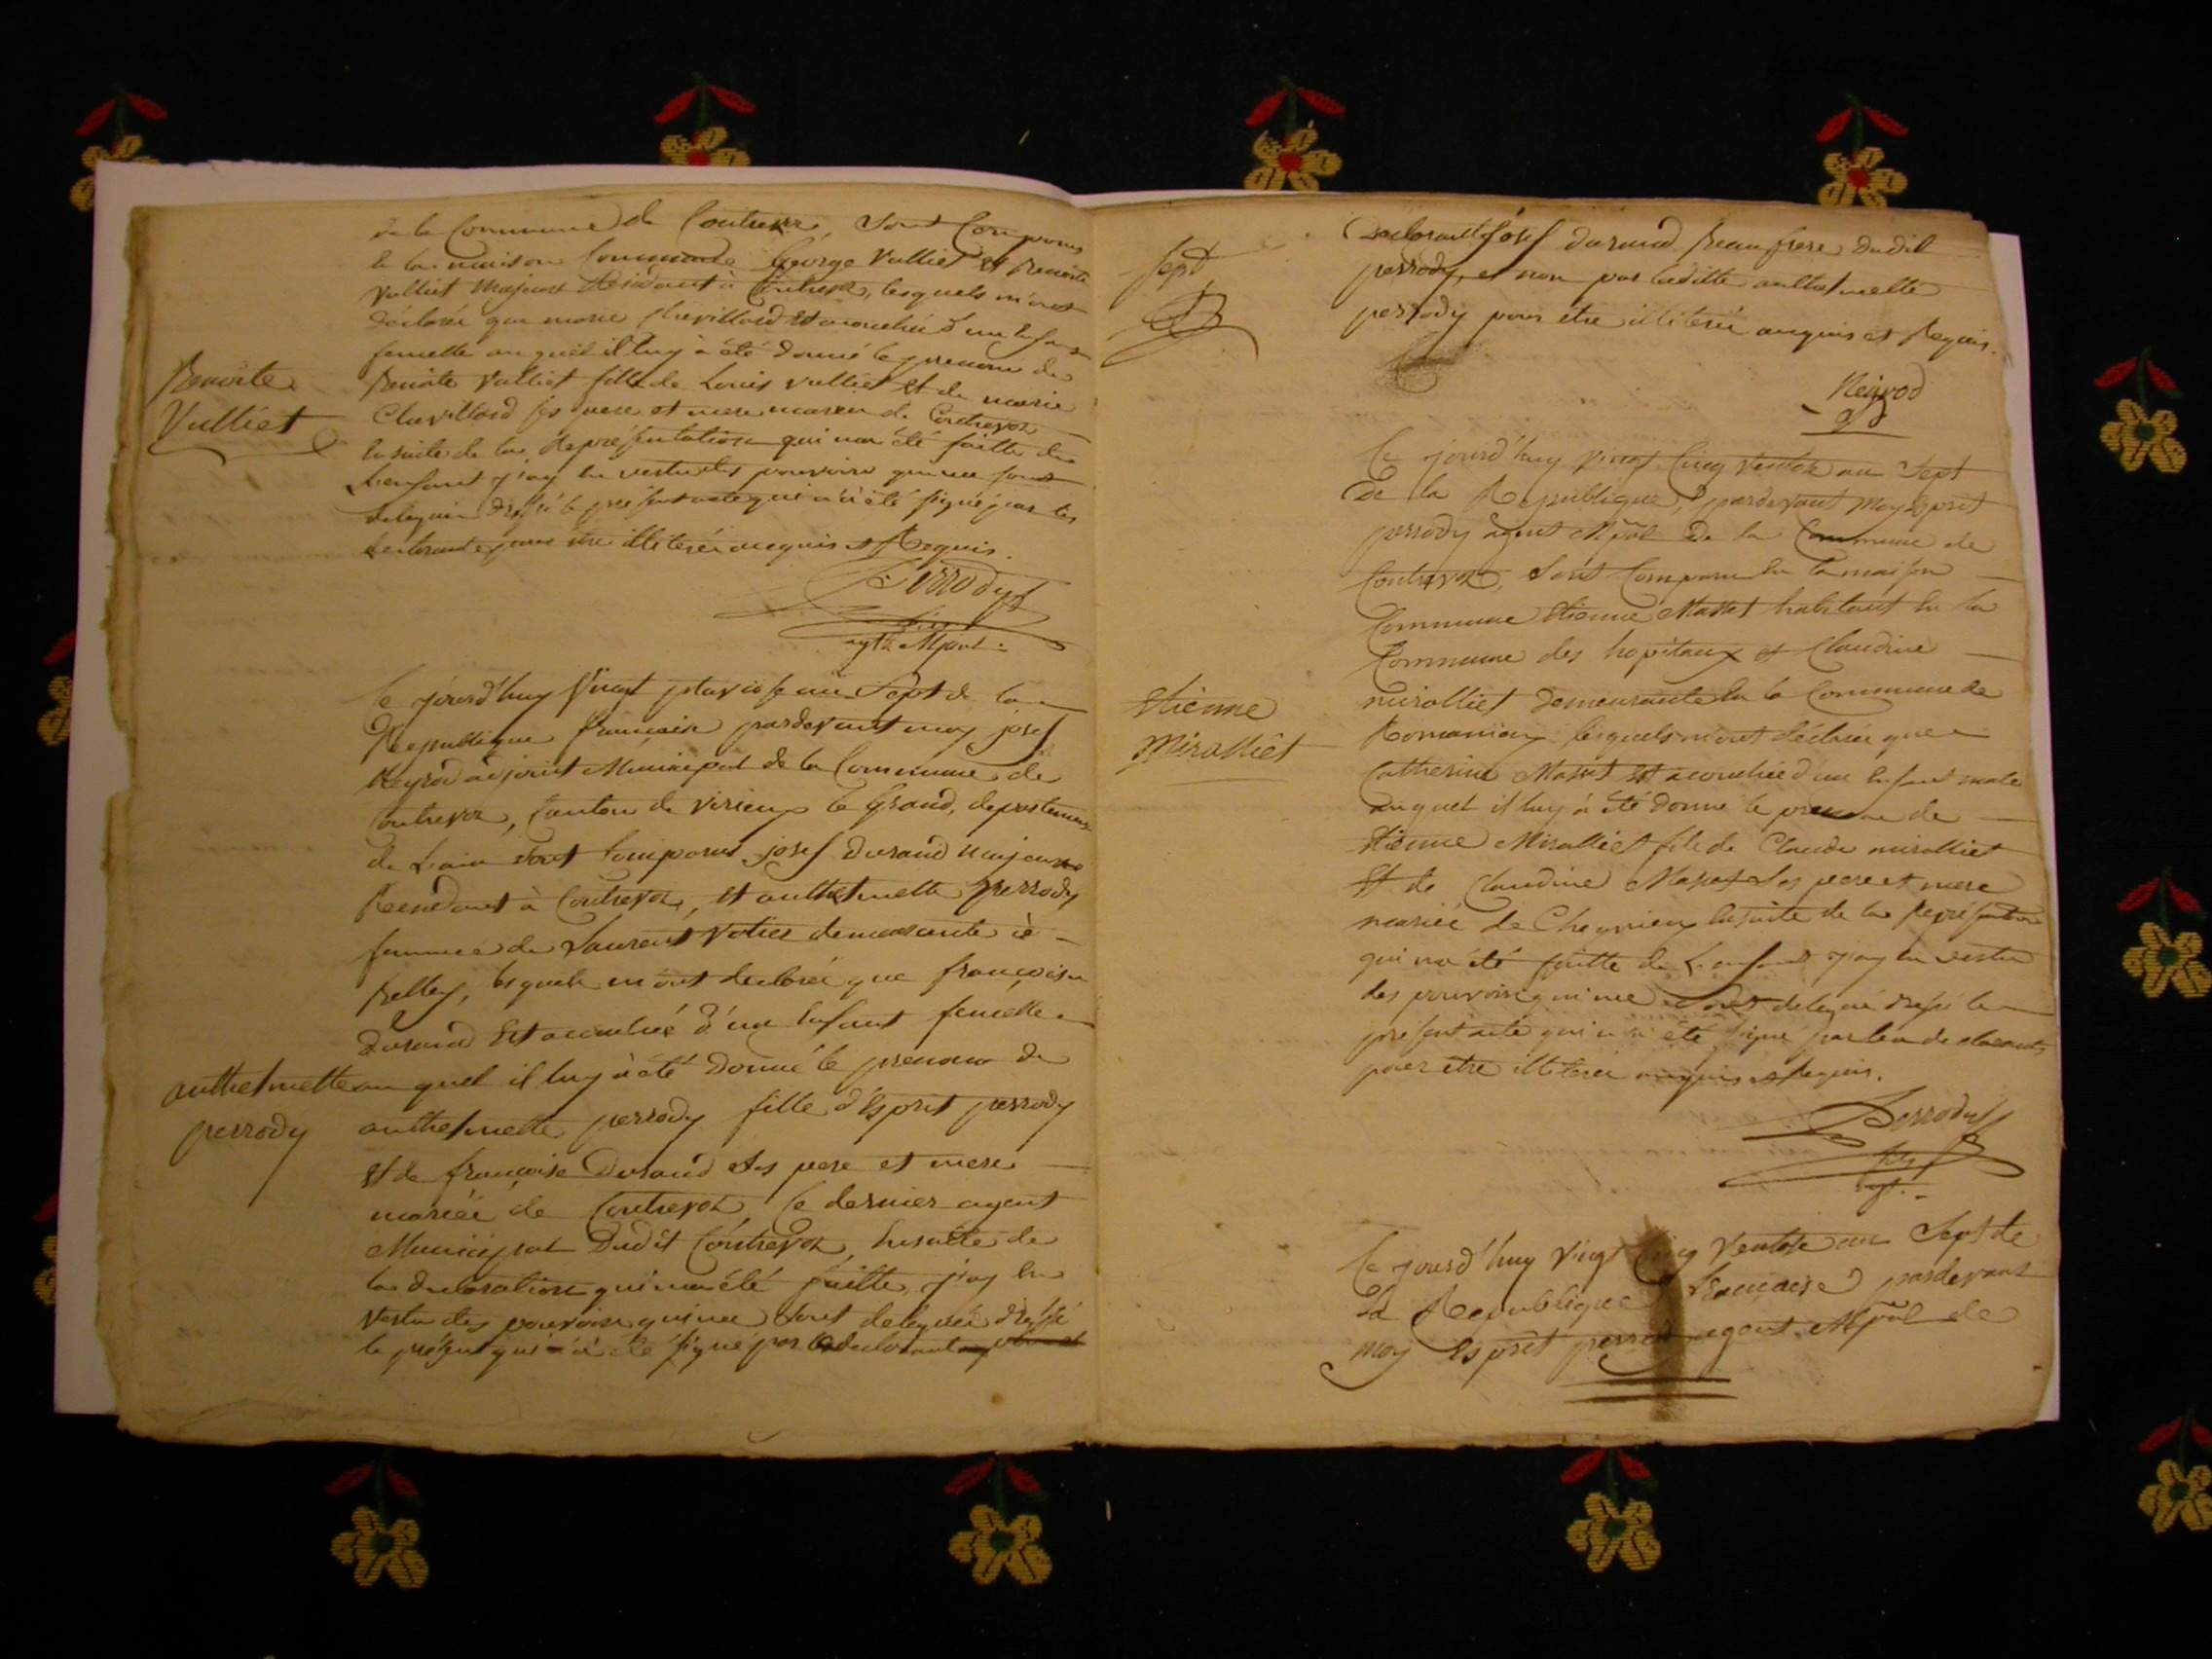 de la Commune de Contrevoz, Sont Comparus
la maison Commune George Vulliet et Benoite
Vulliet Majeurs Résidant à Contrevoz, lesquels m'ont
déclaréz que marie Chevillard est acouchée d'un enfant
femelle auquel il luy à été donné le prenom de
Benoite
Vulliet
Benoite Vulliet fille de Louis Vulliet et de marie
Chevillard ses pere et mere mariéz de Contrevoz
En suite de la Représentation qui m'a été faitte de
L'enfant j'ay En vertu des pouvoirs qui me sont
délegués dressé le présent acte qui n'a été signé par les
declarants pour être illiteréz enquis et Requis.
Perrody
agt Mpal.
Ce jourd'huy Vingt pluviose an Sept de la
Republique francaise pardevant moy josef
Neyrod adjoint Municipal de la Commune de
Contrevoz, Canton de virieux le Grand, departement
de L'ain sont Comparus josef durand majeur
Residant à Contrevoz, et anthelmette perrody
femme de Laurent demeurante à
Belley, lesquels m'ont declaréz que françoise
durand Est acouchée d'un Enfant femelle
anthelmette
perrody
au quel il luy à été Donné le prenom de
anthelmette perrody fille d'Esprit perrody
Et de françoise Durand ses pere et mere
mariéz de Contrevoz Ce dernier agent
Municipal Dudit Contrevoz, Ensuitte de
la declaration qui m'a été faitte, j'ay En
vertu des pouvoirs qui me sont deleguéz dressé
le présent qui à été signé par le declarant
Sept
Declarant Josef durand Beau frere Dudit
perrody, et non par laditte anthelmette
perrody pour être illiterée enquis et Requis.
Neyrod
Ce jourd'huy vingt Cinq Ventose an Sept
De la Republique, pardevant Moy Esprit
perrody agent Mpal De la Commune de
Contrevoz, Sont Comparu En la maison
Commune Etienne Masset habitant En la
Commune des hopitaux et Claudine
Etienne
Miralliet
miralliet demeurante En la Commune de
lesquels m'ont déclaréz que
Catherine Masset Est acouchée d'un Enfant male
auquel il luy à été donné le prenom de
Etienne Miralliet fils de Claude miralliet
Et de Claudine Masset Ses pere et mere
mariéz de Ensuite de la Représentation
qui m'a été faitte de L'enfant j'ay En vertu
des pouvoirs qui me sont delegué dressé le
présent acte qui n'a été signé par les declarants
pour etre illiteréz enquis et Requis.
Perrody
agt.
Ce jourd'huy Vingt Cinq Ventose an Sept de
La Republique francaise pardevant
moy Esprit perrody agent Mpal de